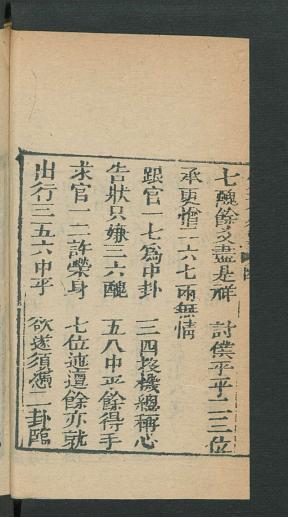 七醜餘爻盡是祥　討僕平平二三位
承更憎二六七兩無情
跟官一七爲中卦　三四投機總稱心
告狀只嫌三六醜　五八中平餘得手
求官一二許榮身　七位迍邅餘亦就
出行三五六中平　欲遂須憑二卦臨